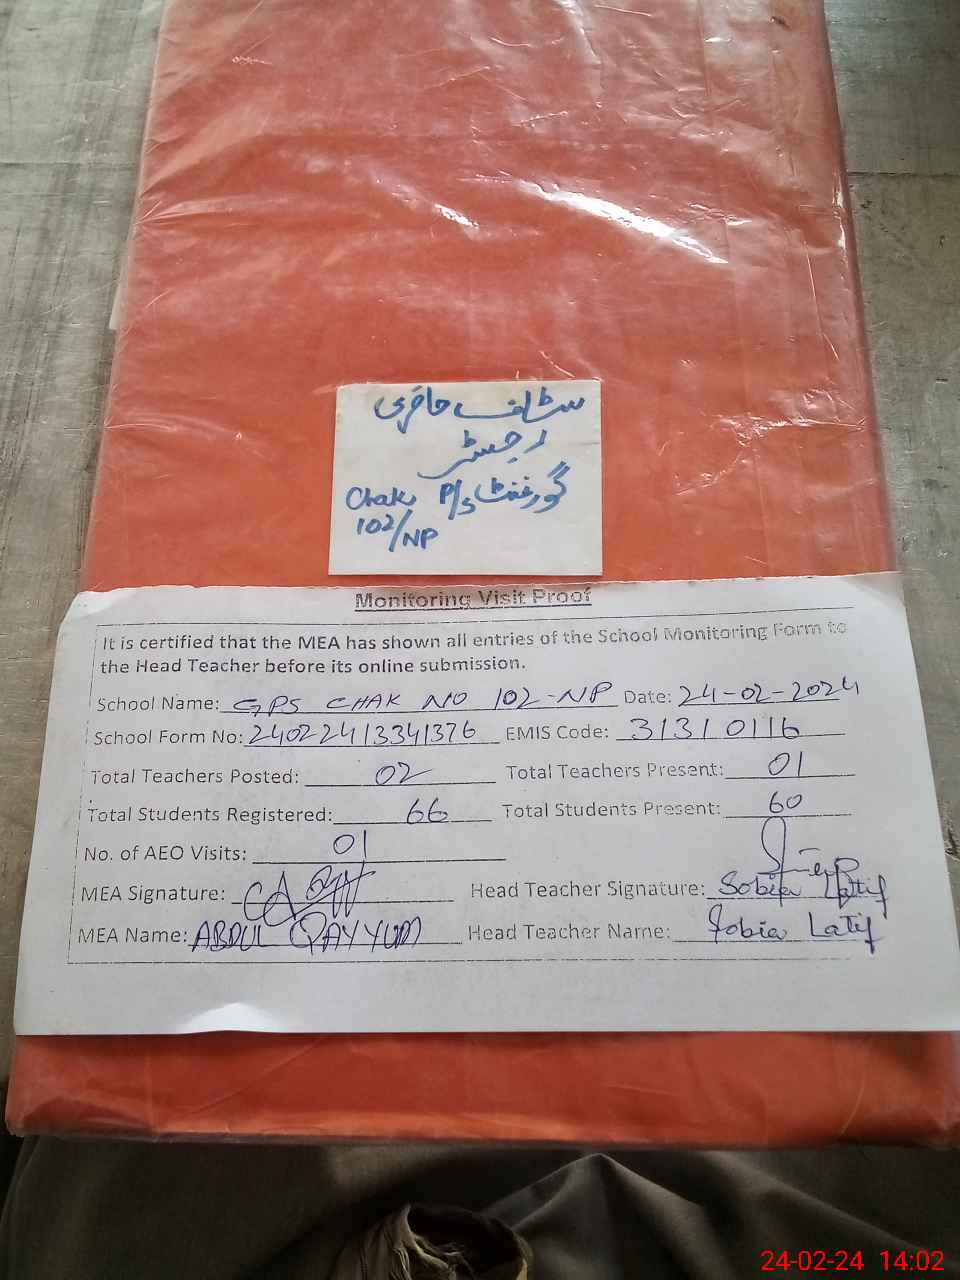 سٹاف حاضری
رجسٹر
گورنمنٹ P/S Chak
102/NP
Monitoring Visit Proof
It is certified that the MEA has shown all entries of the School Monitoring Form to
the Head Teacher before its online submission.
School Name: GPS CHAK NO 102-NP Date: 24-02-2024
School Form No: 24022413341376 EMIS Code: 31310116
Total Teachers Posted: 02 Total Teachers Present: 01
Total Students Registered: 66 Total Students Present: 60
No. of AEO Visits: 01
MEA Signature: Head Teacher Signature: Sobia Latif
MEA Name: ABDUL QAYYUM Head Teacher Name: Sobia Latif
24-02-24 14:02